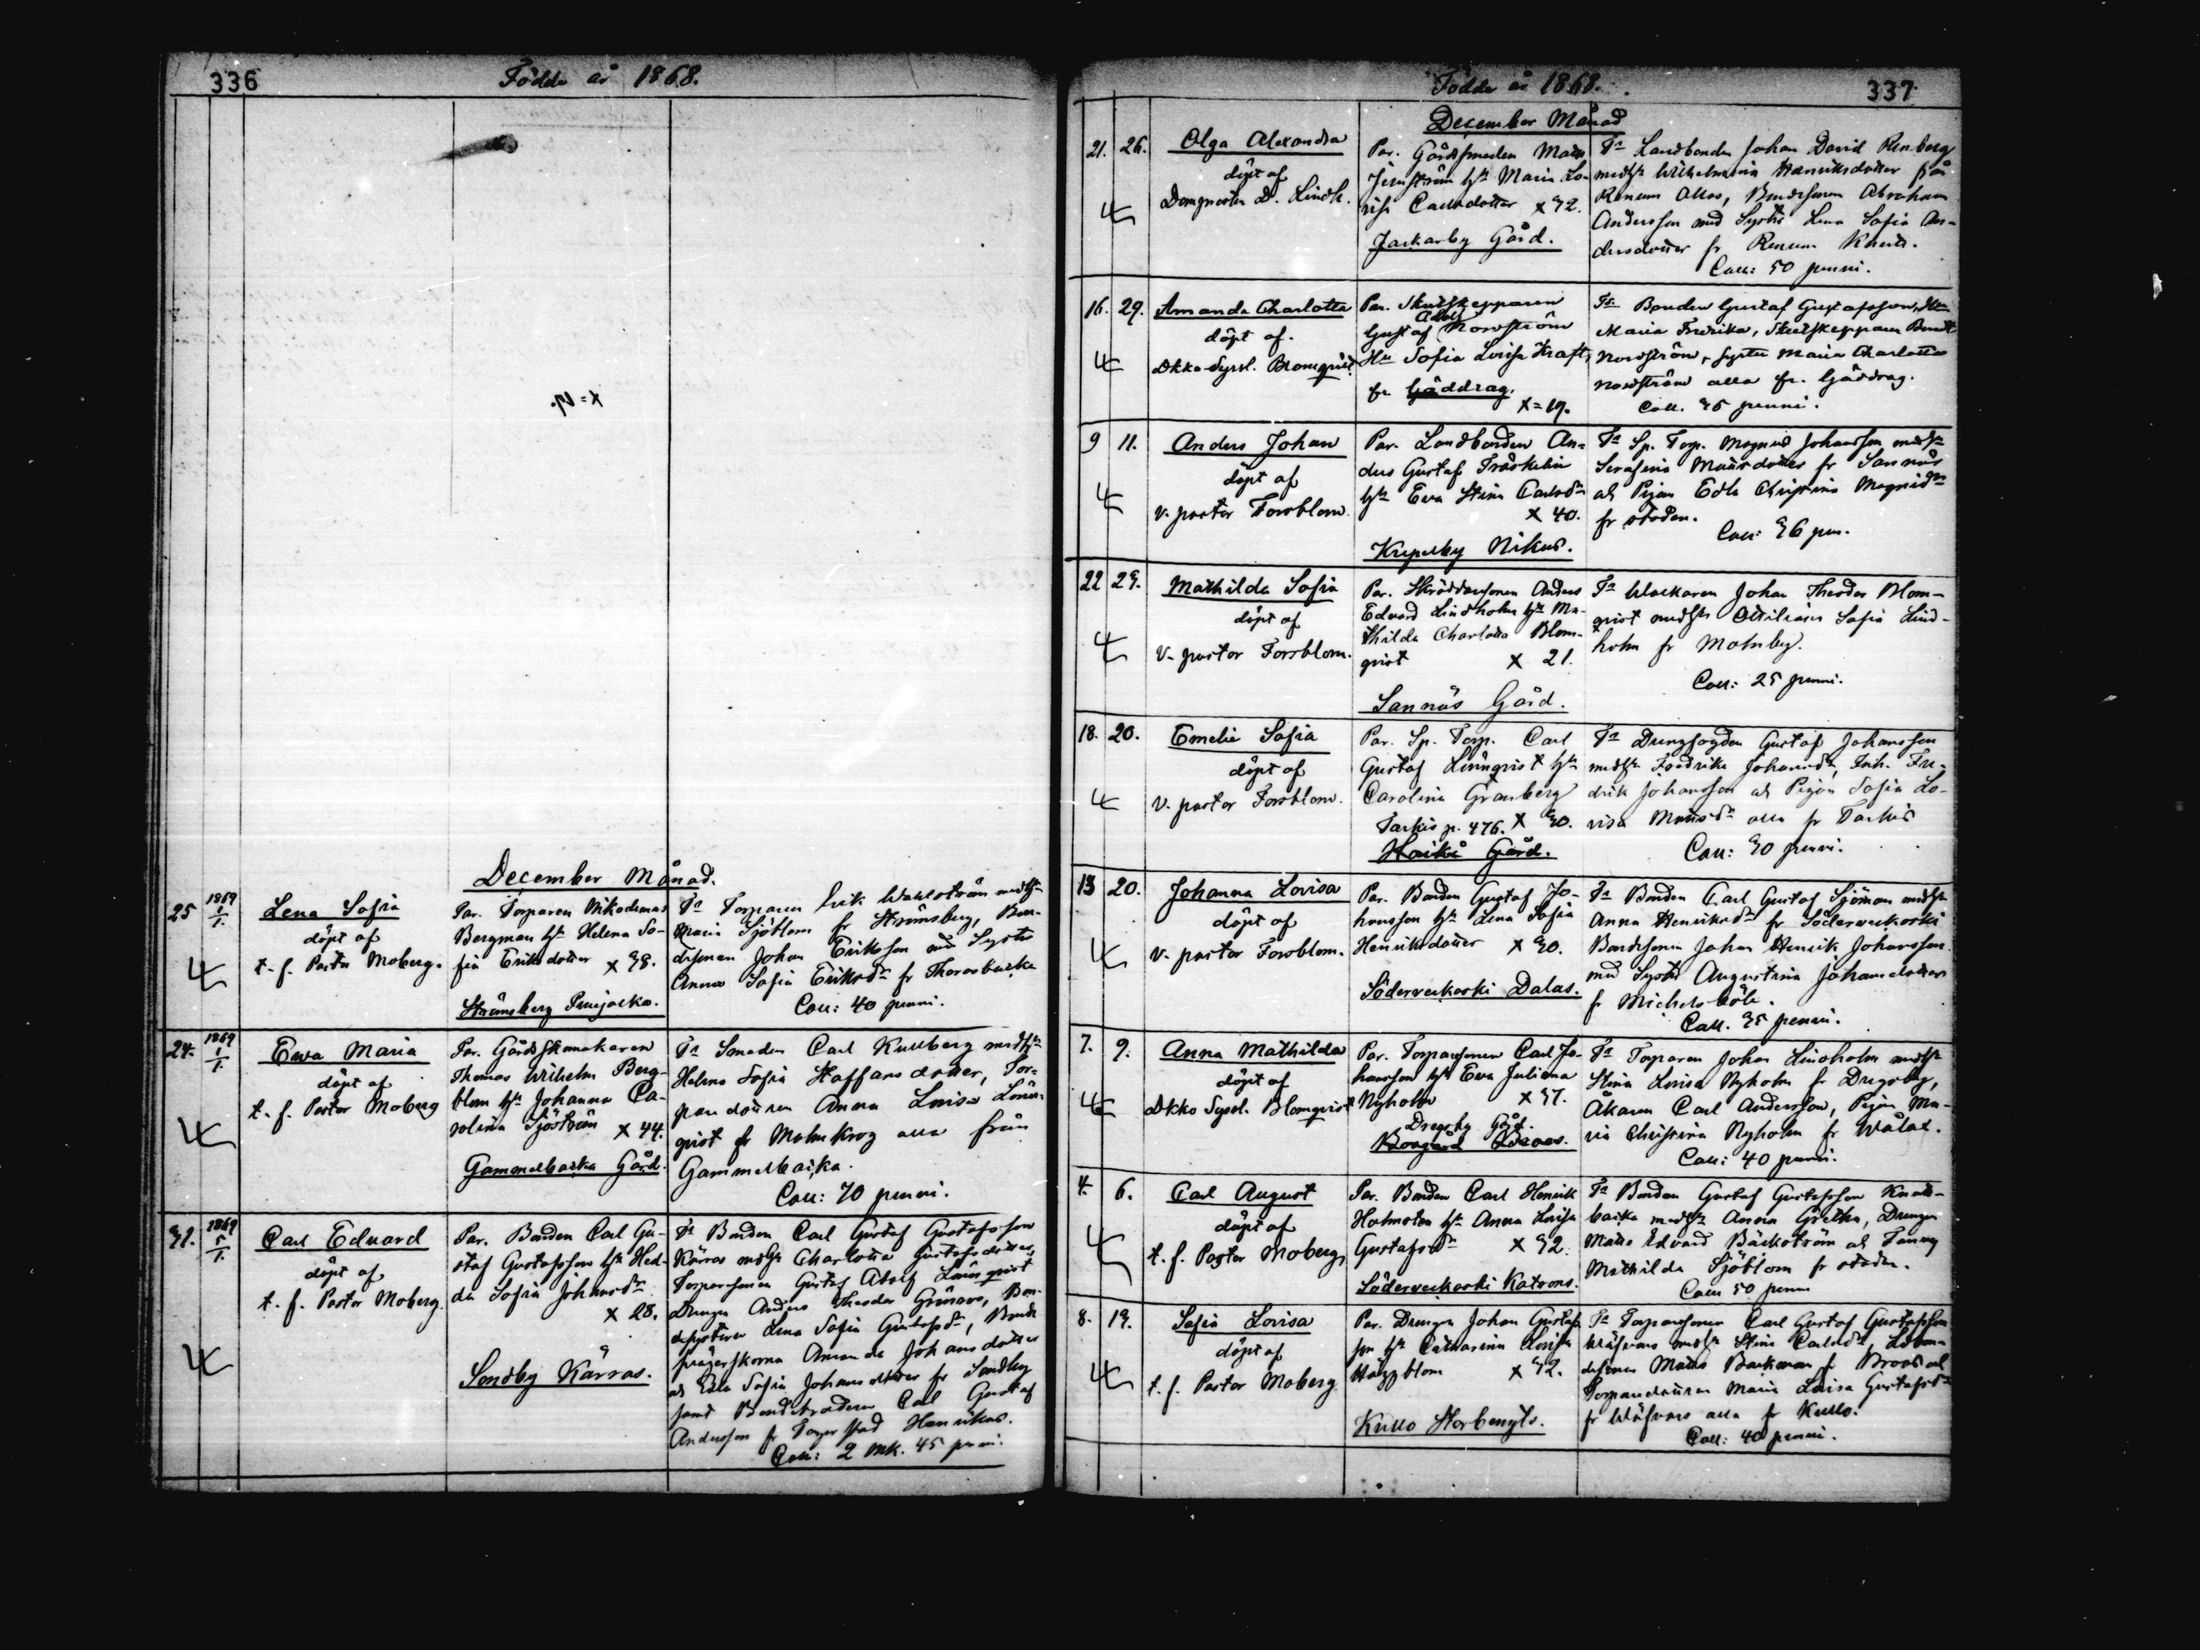 336
Födde år 1868.
x=19.
December Månad.
25
1869
1/1.
Lena Sofia
döpt af
t. f. Pastor Moberg.
Par. Torparen Nikodemus
Bergman hu Helena So-
fia Eriksdotter x 38.
Strömsberg Punjacka.
Fa Torparen Erik Wahlström medhu
Maria Sjöblom fr Strömsberg, Bon-
desonen Johan Eriksson och Syster
Anna Sofia Eriksdr fr Thorasbacka
Coll: 40 penni.
24.
1869
1/1.
Ewa Maria
döpt af
t. f. Pastor Moberg
Par. Gårdsskomakaren
Thomas Wilhelm Berg-
blom hu Johanna Ca-
rolina Sjöström x 44.
Gammelbacka Gård.
Fa Smeden Carl Kullberg medhu
Helena Sofia Staffansdotter, Tor-
paredottren Anna Lovisa Lönn-
qvist fr Malmkrog alla från
Gammelbacka.
Coll: 70 penni.
31.
1869
5/1.
Carl Edvard
döpt af
t. f. Pastor Moberg.
Par. Bonden Carl Gu-
staf Gustafsson hu Hed-
da Sofia Johansdr
x 28.
Sondby Kärras.
Fa Bonden Carl Gustaf Gustafsson
Kärras medhu Charlotta Gustafsdotter,
Torparesonen Gustaf Adolf Lönnqvist
Drengen Anders Theodor Grönroos, Bon-
desystern Lena Sofia Gustafsdr, Bonde
Amanda Johansdotter
och Edla Sofia Johansdotter fr Sondby
samt Bondebrodern Carl Gustaf
Andersson fr
Coll: 2 mk. 45 penni.
Födde år 1868.
337
December Månad
21. 26.
Olga Alexandra
döpt af
Domprosten D. Lindh.
Par. Gårdssmeden Mats
Jernström hu Maria Lo-
visa Carlsdotter x 32.
Jackarby Gård.
Fa Landbonden Johan David Renberg
medhu Wilhelmina Henriksdotter från
Renum Alkos, Bondesonen Abraham
Andersson med Syster Lena Sofia An-
dersdotter fr Renum
Coll: 50 penni.
16. 29.
Amanda Charlotta
döpt af.
Dkka-Syssl. Blomqvist.
Par. Skutskepparen
Gustaf Adolf Nordström
Hu Sofia Lovisa Kraft,
fr Gäddrag.
x=19.
Fa: Bonden Gustaf Gustafsson, Hu
Maria Fredrika, Skutskepparen
Nordström, syster Maria Charlotta
Nordström alla fr. Gäddrag.
Coll. 35 penni.
9 11.
Anders Johan
döpt af
v. pastor Forsblom.
Par. Landbonden An-
ders Gustaf Fräskelin
hu Eva Stina Carlsdr
x 40.
Kreppelby Nikus.
Fa Sp. Torp. Magnus Johansson medhu
Serafina Matsdotter fr Sannäs
och Pigan Edla Christina Magnidr
fr staden.
Coll: 36 pen.
22 29.
Mathilda Sofia
döpt af
v. pastor Forsblom.
Par. Skräddaresonen Anders
Edvard Lindholm hu Ma-
thilda Charlotta Blom-
qvist x 21.
Sannäs Gård.
Fa Wäckaren Johan Theodor Blom-
qvist medhu Ottiliana Sofia Lind-
holm fr Malmby.
Coll: 25 penni.
18. 20.
Emelie Sofia
döpt af
v. pastor Forsblom.
Par. Sp. Torp. Carl
Gustaf Lönnqvist hu
Carolina Granberg
Tarkis p. 476. x 30.
Haiko Gård.
Fa Drengfogden Gustaf Johansson
medhu Fredrika Johansdr, Inh. Fre-
drik Johansson och Pigan Sofia Lo-
visa Matsdr alla fr Tarkis
Coll: 30 penni.
13 20.
Johanna Lovisa
döpt af
v. pastor Forsblom.
Par. Bonden Gustaf Jo-
hansson hu Lena Sofia
Henriksdotter x 30.
Söderveckoski Dalas.
Fa Bonden Carl Gustaf Sjöman medhu
Anna Henriksdr fr Söderveckoski
Bondesonen Johan Henrik Johansson
med Syster Augustina Johansdotter
fr Michelsböle.
Coll. 35 penni.
7. 9.
Anna Mathilda
döpt af
Dkka Syssl. Blomqvist
Par. Torparesonen Carl Jo-
hansson hu Eva Juliana
Nyholm x 37.
Dregsby Gård.
Fa Torparen Johan Lindholm medhu
Stina Lovisa Nyholm fr Dregsby,
Åkaren Carl Andersson, Pigan Ma-
ria Christina Nyholm fr Wålax.
Coll: 40 penni.
4. 6.
Carl August
döpt af
t. f. Pastor Moberg,
Par. Bonden Carl Henrik
Holmsten hu Anna Lovisa
Gustafsdr x 32.
Söderveckoski Katrons.
Fa Bonden Gustaf Gustafsson
backa medhu Anna Gretha, Drengen
Mats Edvard Bäckström och Fanny
Mathilda Sjöblom fr staden.
Coll 50 penni
8. 19.
Sofia Lovisa
döpt af
t. f. Pastor Moberg
Par. Drengen Johan Gustafs-
son hu Catharina Lovisa
Häggblom x 32.
Kullo Storbengts.
Fa Torparesonen Carl Gustaf Gustafsson
medhu Stina Carlsdr,
Mats Backman fr
Torparedottren Maria Lovisa Gustafsdr
alla fr Kullo.
Coll: 40 penni.